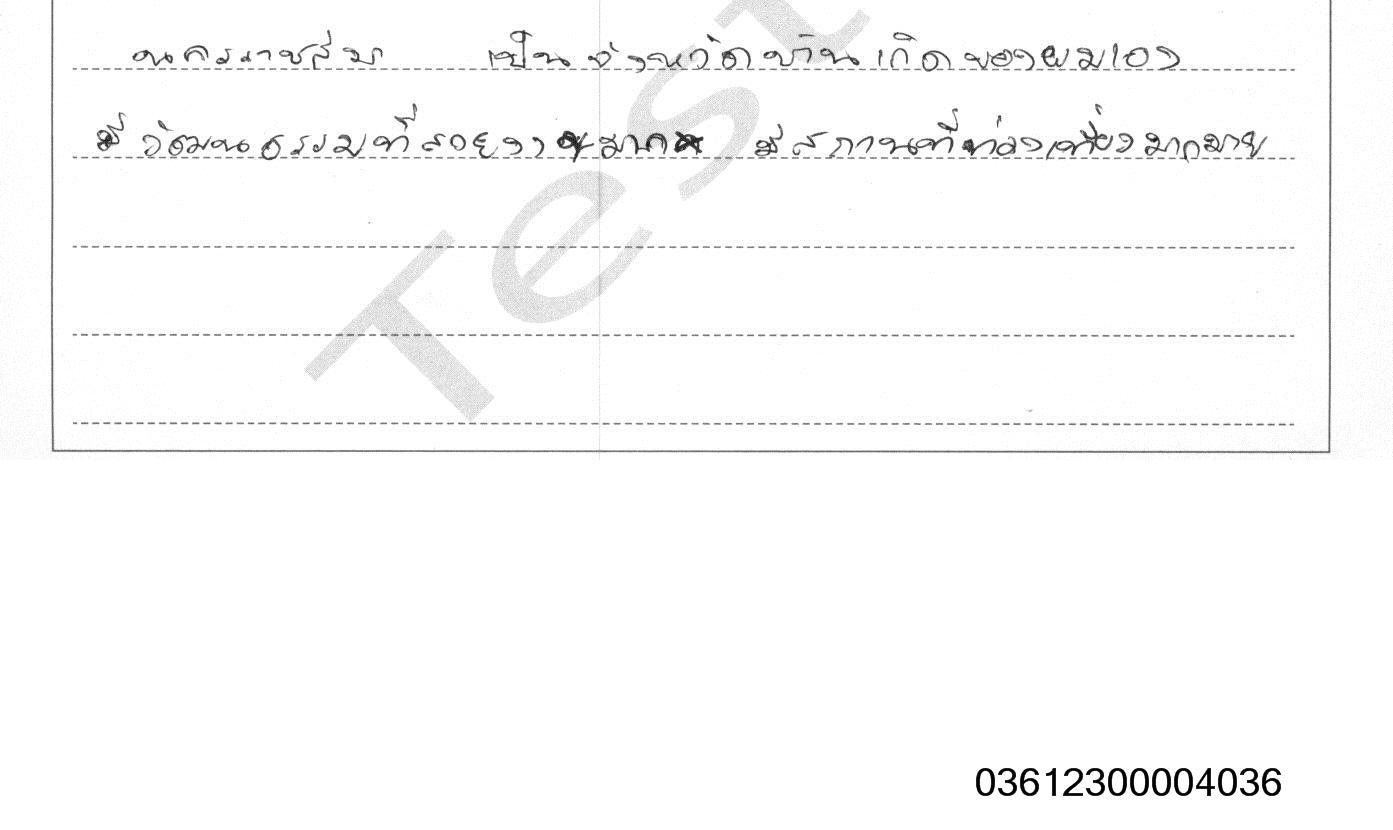 นครราชสีมา เป็นจังหวัดบ้านเกิดของผมเอง
มีวัฒนธรรมที่สวยงาม มาก มีสถานที่ท่องเที่ยวมากมาย
Test
03612300004036